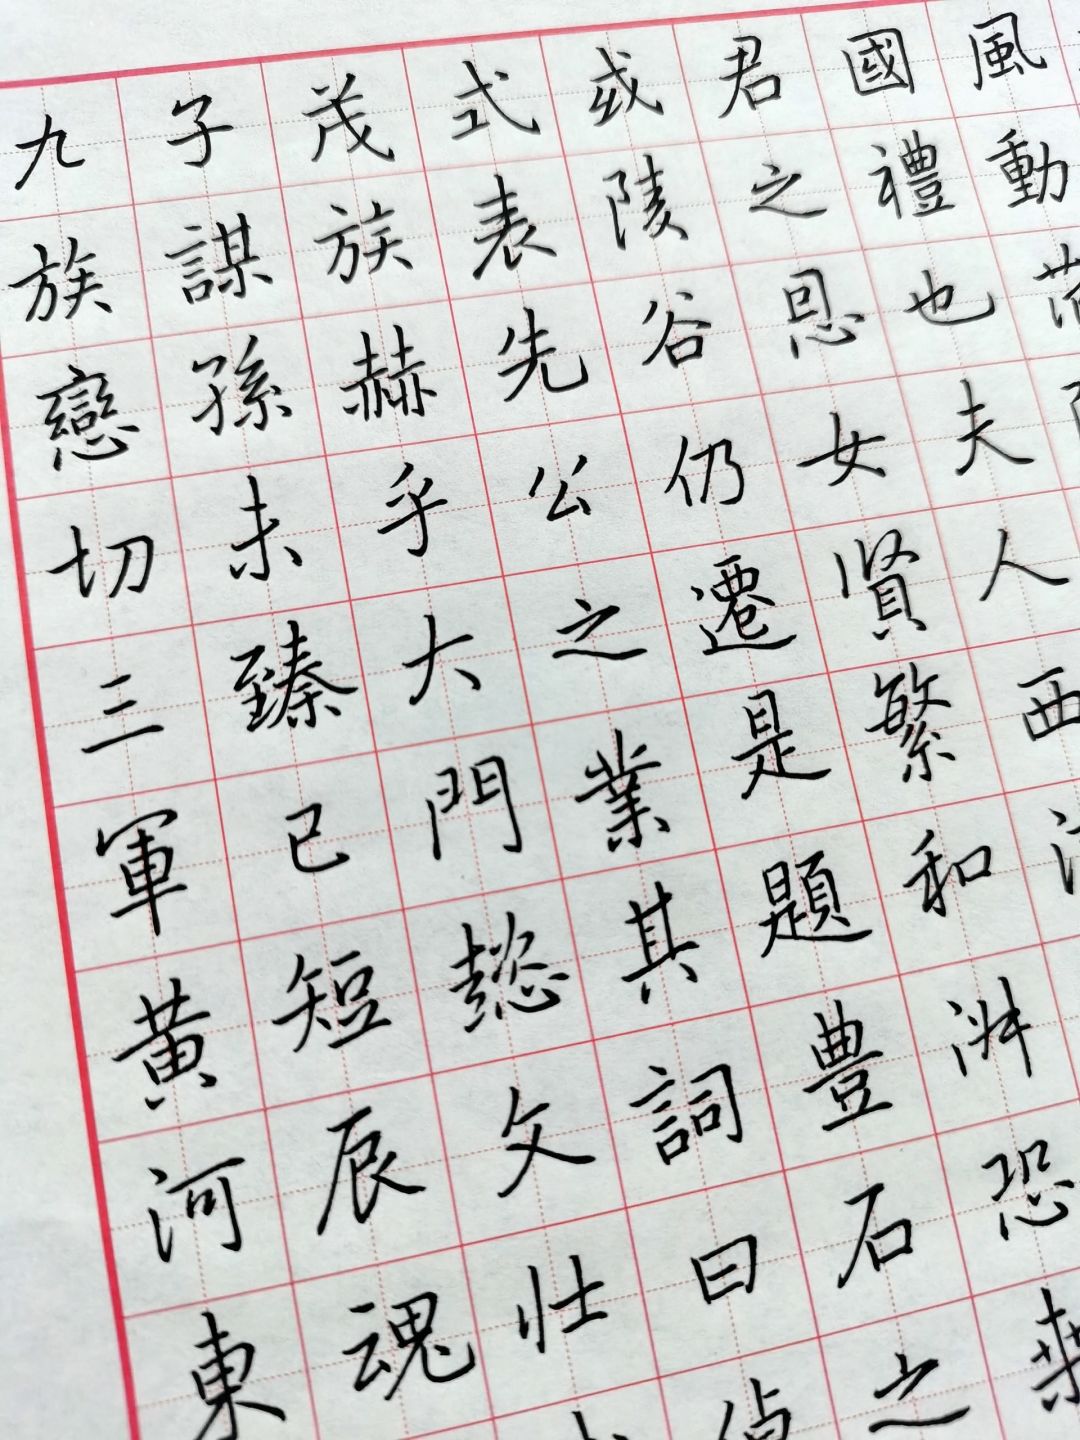 風動
國禮也夫人西
君之恩女賢繁和恐
或陵谷仍遷是題豊石之
式表先公之業其詞曰
茂族赫乎大門懿文壯
子謀孫未臻已短辰魂
九族戀切三軍黃河東